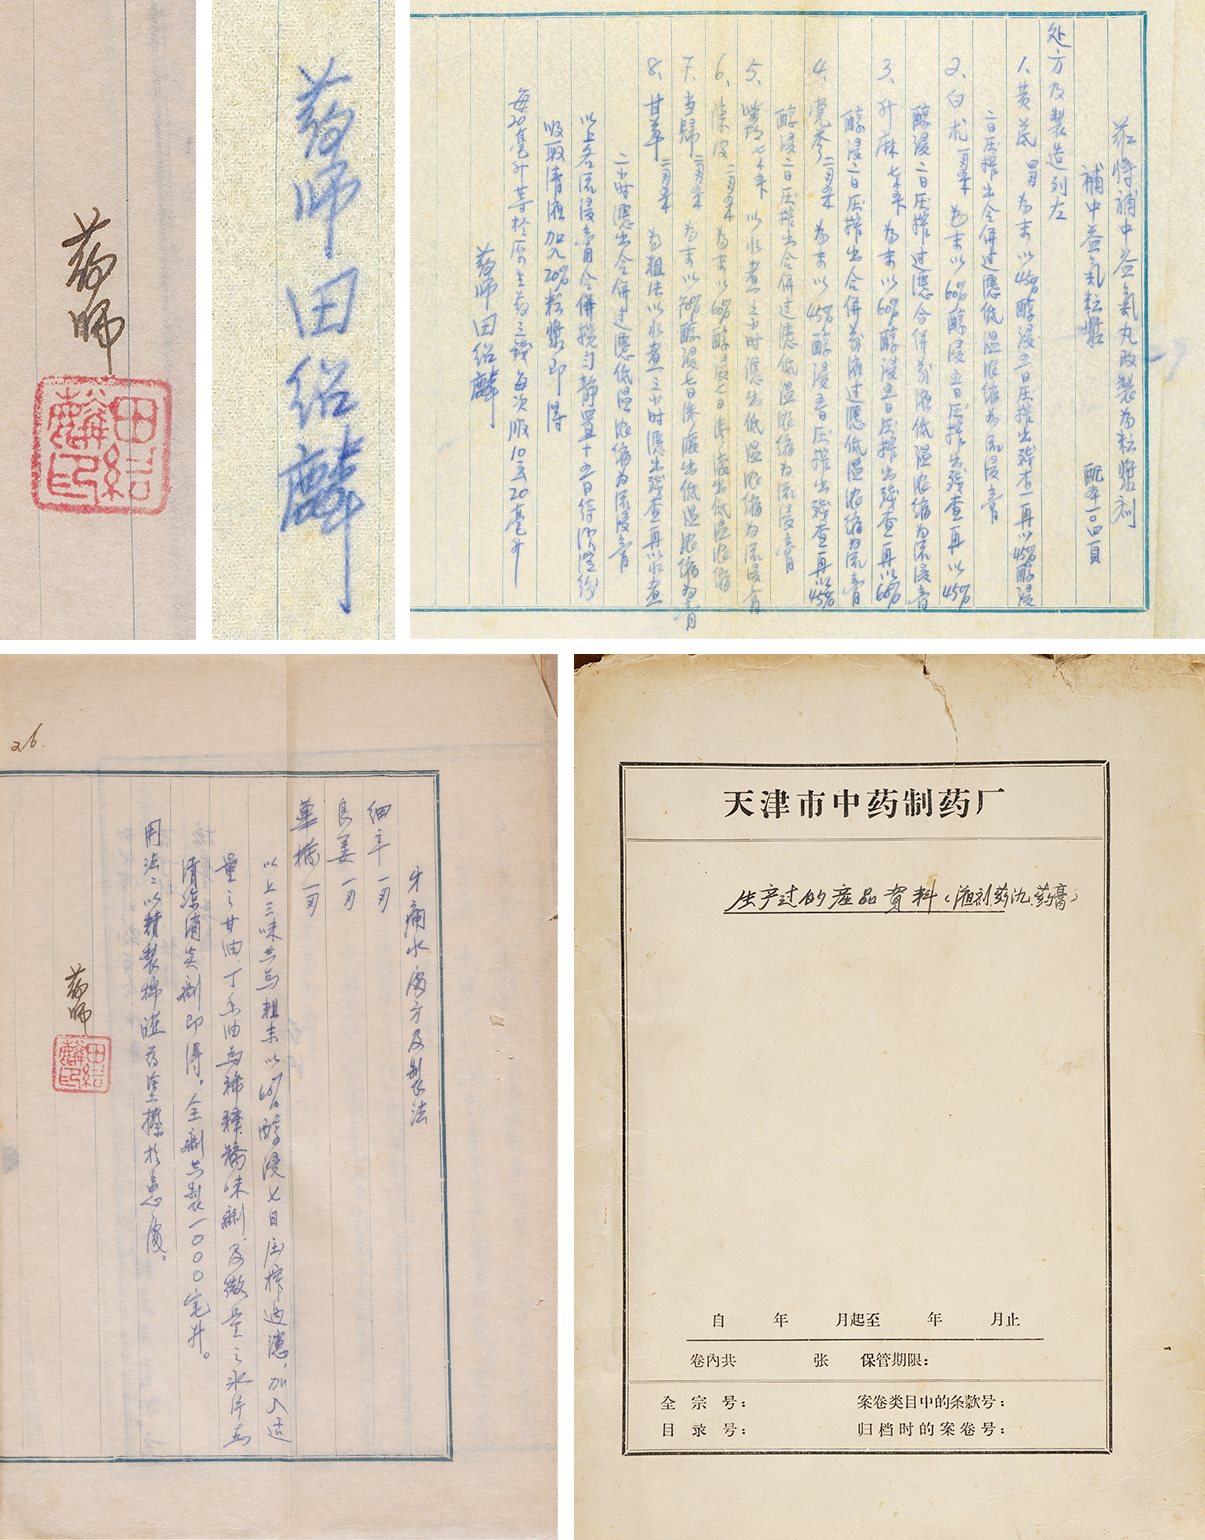 药师
田绍麟印
药师田绍麟
兹将补中益氣丸改製为粘漿剂
補中益氣粘漿 配本一〇四頁
处方及製造列左
1、黄芪 为末以45%醇浸五日压搾出残查一再以45%醇浸
二日压搾出合併过濾低温浓缩为流浸膏
2、白术 为末以60%醇浸五日压搾出残查再以45%
醇浸二日压搾过濾合併 液低温浓缩为流浸膏
3、升麻 七钱半 为末以60%醇浸五日压搾出残查再以60%
醇浸二日压搾出合併 液过濾低温浓缩为流膏
4、党参 为末以45%醇浸五日压搾出残查一再以45%
醇浸二日压搾出合併过濾低温浓缩为流浸膏
5、柴胡 七钱半 以水煮二小时濾出低温浓缩为流浸膏
6、陳皮 为末以60%醇浸七日 濾出低温浓缩
7、当歸 为末以70%醇浸七日 濾出低温浓缩为膏
8、甘草 为粗末以水煮二小时濾出残查再以水煮
二小时濾出合併过濾低温浓缩为流浸膏
以上各流浸膏合併搅匀静置十五日待沉淀後
吸取清液加入20%粘漿即得
每20毫升等於原生药三錢每次服10至20毫升
药师田绍麟
26.
牙痛水處方及製法
細辛 一两
良姜 一两
蓽撥 一两
以上三味共为粗末以60%醇浸七日压搾过濾,加入适
量之甘油丁香油为稀釋矯味劑,及微量之冰片为
清涼消炎劑即得。全劑共製一000毫升。
用法:以精製棉蘸药塗擦於患處。
药师
田绍麟印
天津市中药制药厂
生产过的産品資料(液剂.药氿.药膏)
自 年 月起至 年 月止
卷内共 张 保管期限:
全宗号: 案卷类目中的条款号:
目录号: 归档时的案卷号: